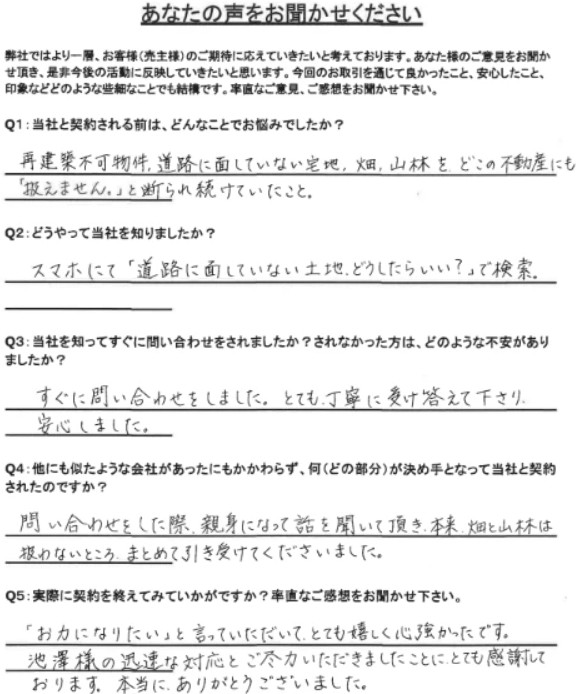 あなたの声をお聞かせください
弊社ではより一層、お客様（売主様）のご期待に応えていきたいと考えております。あなた様のご意見をお聞か
せ頂き、是非今後の活動に反映していきたいと思います。今回のお取引を通じて良かったこと、安心したこと、
印象などどのような些細なことでも結構です。率直なご意見、ご感想をお聞かせ下さい。
Q1：当社と契約される前は、どんなことでお悩みでしたか？
再建築不可物件、道路に面していない宅地、畑、山林を、どこの不動産にも
「扱えません。」と断られ続けていたこと。
Q2：どうやって当社を知りましたか？
スマホにて「道路に面していない土地、どうしたらいい？」で検索。
Q3：当社を知ってすぐに問い合わせをされましたか？されなかった方は、どのような不安があり
ましたか？
すぐに問い合わせをしました。とても、丁寧に受け答えて下さり、
安心しました。
Q4：他にも似たような会社があったにもかかわらず、何（どの部分）が決め手となって当社と契約
されたのですか？
問い合わせをした際、親身になって話を聞いて頂き、本来、畑と山林は
扱わないところ、まとめて引き受けてくださいました。
Q5：実際に契約を終えてみていかがですか？率直なご感想をお聞かせ下さい。
「お力になりたい」と言っていただいて、とても嬉しく心強かったです。
池澤様の迅速な対応とご尽力いただきましたことに、とても感謝して
おります。本当に、ありがとうございました。